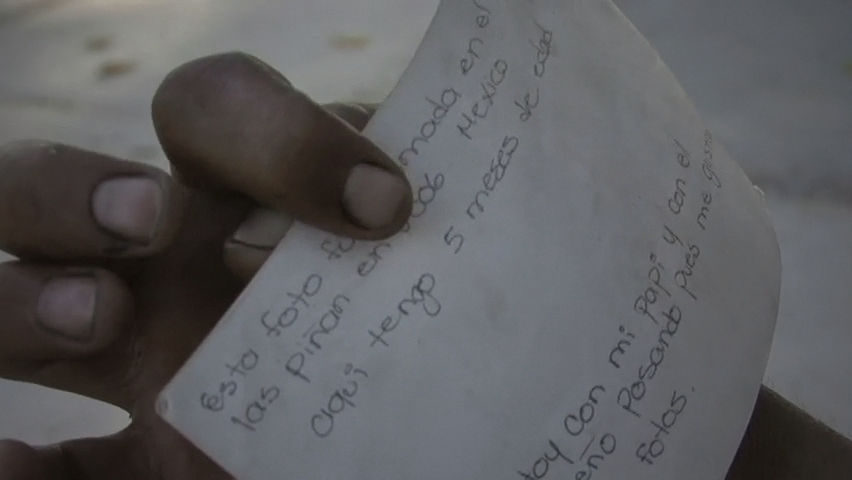 Esta foto mada en el
las piñan en 006 Mexico
aqui tengo 5 meses de edad
toy con mi papi y con el
eño posando pues me
fotos.